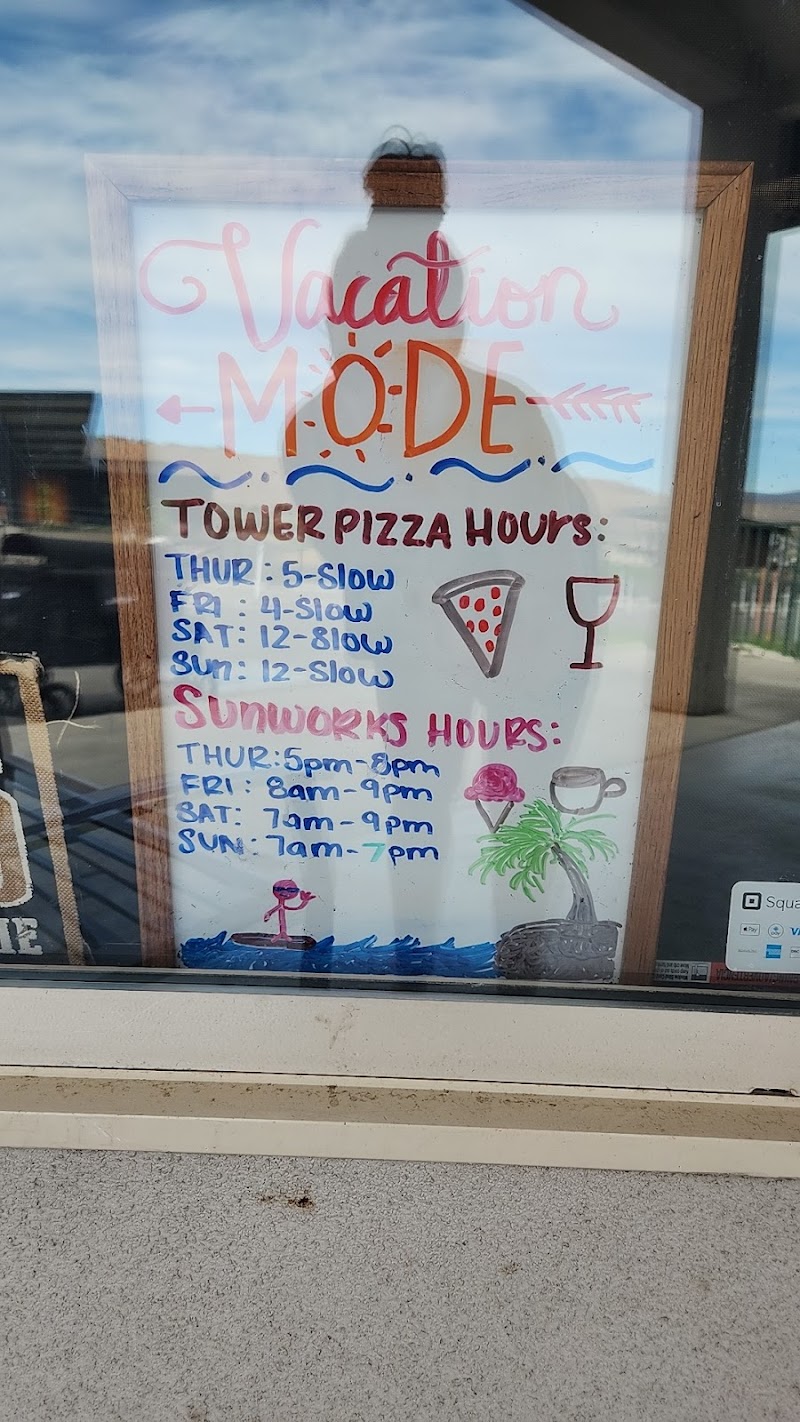 Vacation
MODE
TOWER PIZZA HOURS:
THUR: 5-Slow
FRI: 4-Slow
SAT: 12-Slow
Sun: 12-Slow
SUNWORKS HOURS:
THUR: 5pm-8pm
FRI: 8am-9pm
SAT: 7am-9pm
SUN: 7am-7pm
Squa
Pay